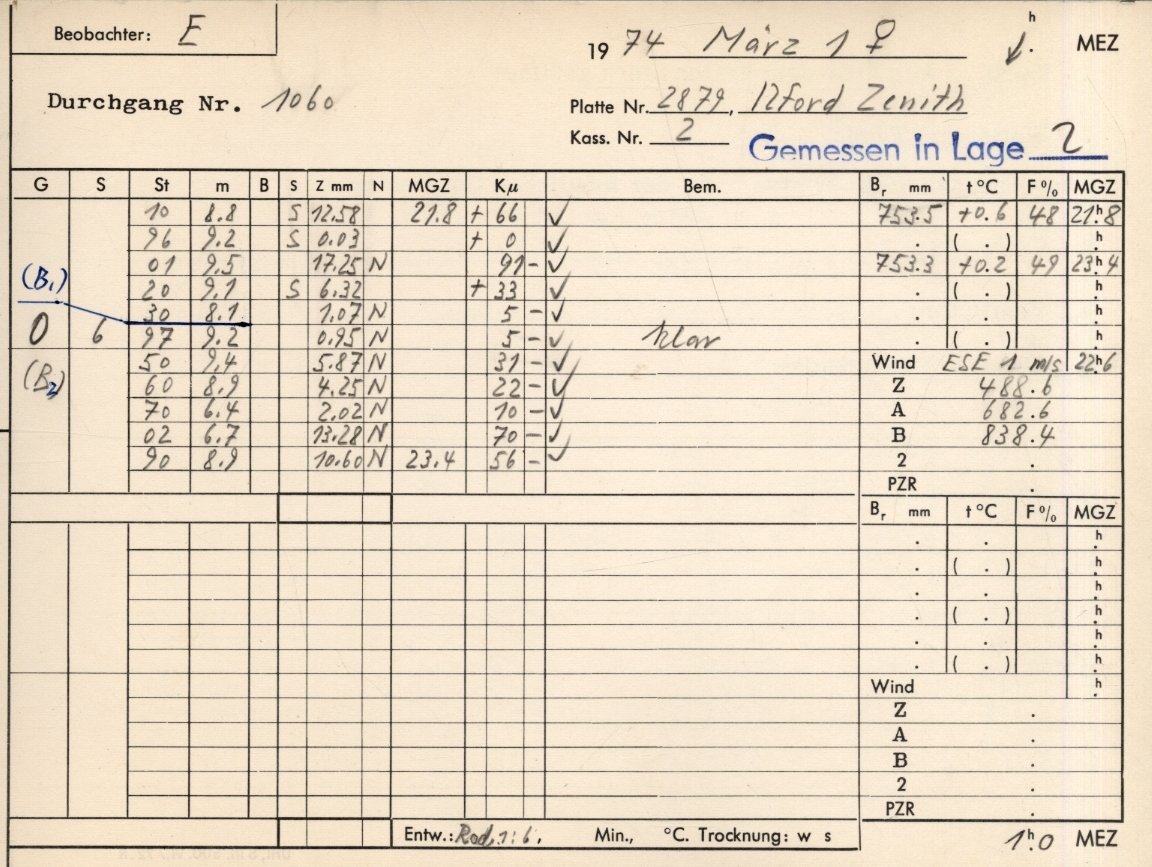 Beobachter: E
19 74 März 1 ♀ h . MEZ
Durchgang Nr. 1060
Platte Nr. 2879, Ilford Zenith
Kass. Nr. 2
Gemessen in Lage 2
G S St m B S Z mm N MGZ Kμ Bem. Br mm t °C F % MGZ
10 8.8 S 12.58 21.8 + 66 ✓ 753.5 +0.6 48 21h.8
96 9.2 S 0.03 + 0 ✓ . ( . ) h.
01 9.5 17.25 N 91 - ✓ 753.3 +0.2 49 23h.4
(B1) 20 9.1 S 6.32 + 33 ✓ . ( . ) h.
30 8.1 1.07 N 5 - ✓ . . h.
0 6 97 9.2 0.95 N 5 - ✓ klar . ( . ) h.
50 9.4 5.87 N 31 - ✓ Wind ESE 1 m/s 22h.6
(B2) 60 8.9 4.25 N 22 - ✓ Z 488.6
70 6.4 2.02 N 10 - ✓ A 682.6
02 6.7 13.28 N 70 - ✓ B 838.4
90 8.9 10.60 N 23.4 56 - ✓ 2 .
PZR .
Br mm t °C F % MGZ
. . h.
. ( . ) h.
. . h.
. ( . ) h.
. . h.
. ( . ) h.
Wind h
Z .
A .
B .
2 .
PZR .
Entw.: Rod. 1:6, Min., °C. Trocknung: w s 1h.0 MEZ